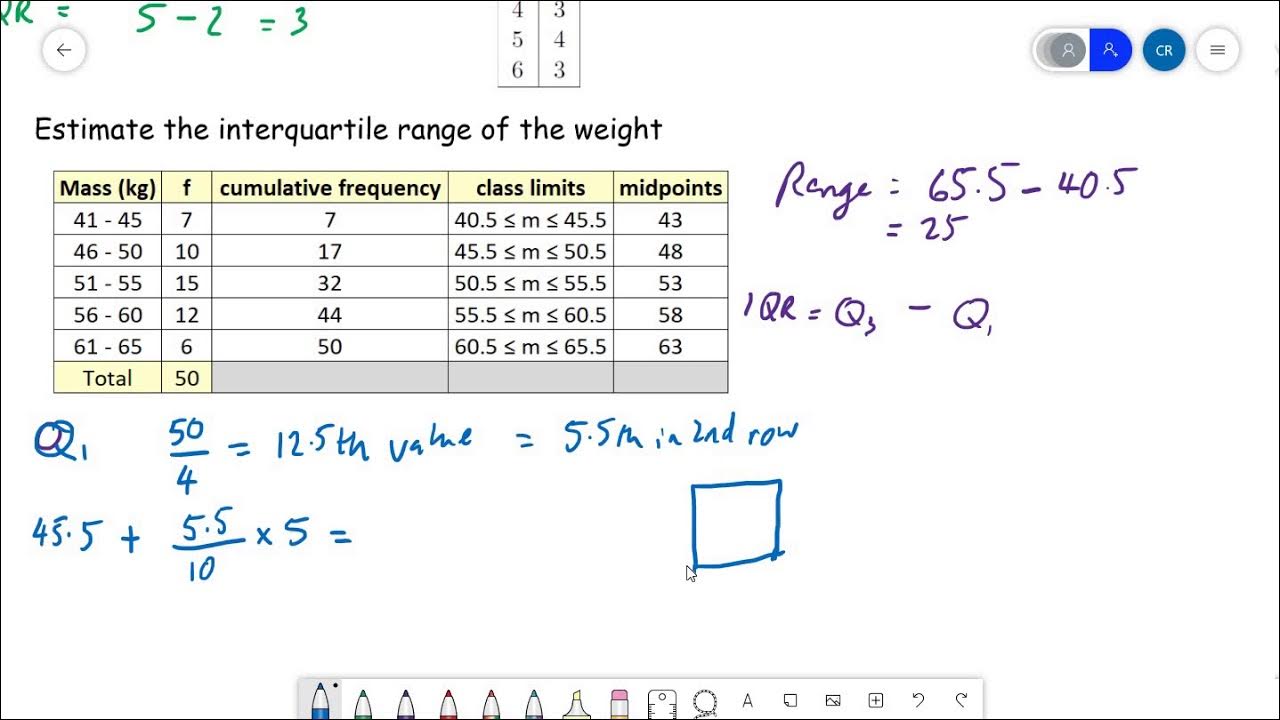 QR = 5 - 2 = 3
4 3
5 4
6 3
CR
Estimate the interquartile range of the weight
Mass (kg) f cumulative frequency class limits midpoints
41 - 45 7 7 40.5 ≤ m ≤ 45.5 43
46 - 50 10 17 45.5 ≤ m ≤ 50.5 48
51 - 55 15 32 50.5 ≤ m ≤ 55.5 53
56 - 60 12 44 55.5 ≤ m ≤ 60.5 58
61 - 65 6 50 60.5 ≤ m ≤ 65.5 63
Total 50
Range = 65.5 - 40.5
= 25
IQR = Q3 - Q1
Q1 50/4 = 12.5th value = 5.5th in 2nd row
45.5 + 5.5/10 × 5 =
A